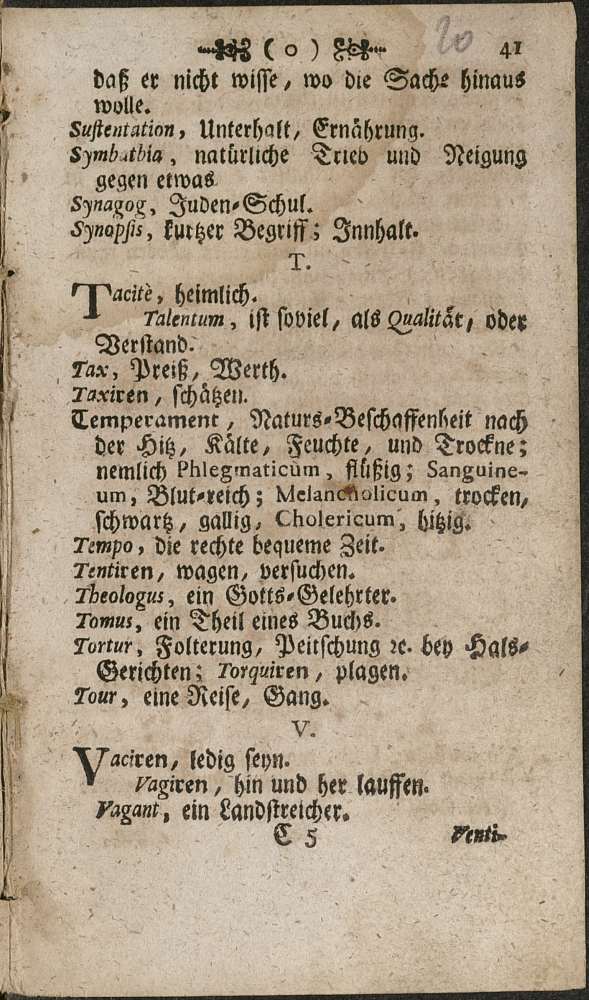 ( o ) 20 41
daß er nicht wisse, wo die Sache hinaus
wolle.
Sustentation, Unterhalt, Ernährung.
Symbathia, natürliche Trieb und Neigung
gegen etwas
Synagog, Juden-Schul.
Synopsis, kurtzer Begriff; Innhalt.
T.
Tacitè, heimlich.
Talentum, ist soviel, als Qualität, oder
Verstand.
Tax, Preiß, Werth.
Taxiren, schätzen.
Temperament, Naturs-Beschaffenheit nach
der Hitz, Kälte, Feuchte, und Trockne;
nemlich Phlegmaticùm, flüßig; Sanguine-
um, Blut-reich; Melancholicum, trocken,
schwartz, gallig, Cholericum, hitzig.
Tempo, die rechte bequeme Zeit.
Tentiren, wagen, versuchen.
Theologus, ein Gotts-Gelehrter.
Tomus, ein Theil eines Buchs.
Tortur, Folterung, Peitschung ꝛc. bey Hals-
Gerichten; Torquiren, plagen.
Tour, eine Reise, Gang.
V.
Vaciren, ledig seyn.
Vagiren, hin und her lauffen.
Vagant, ein Landstreicher.
C 5 Venti-